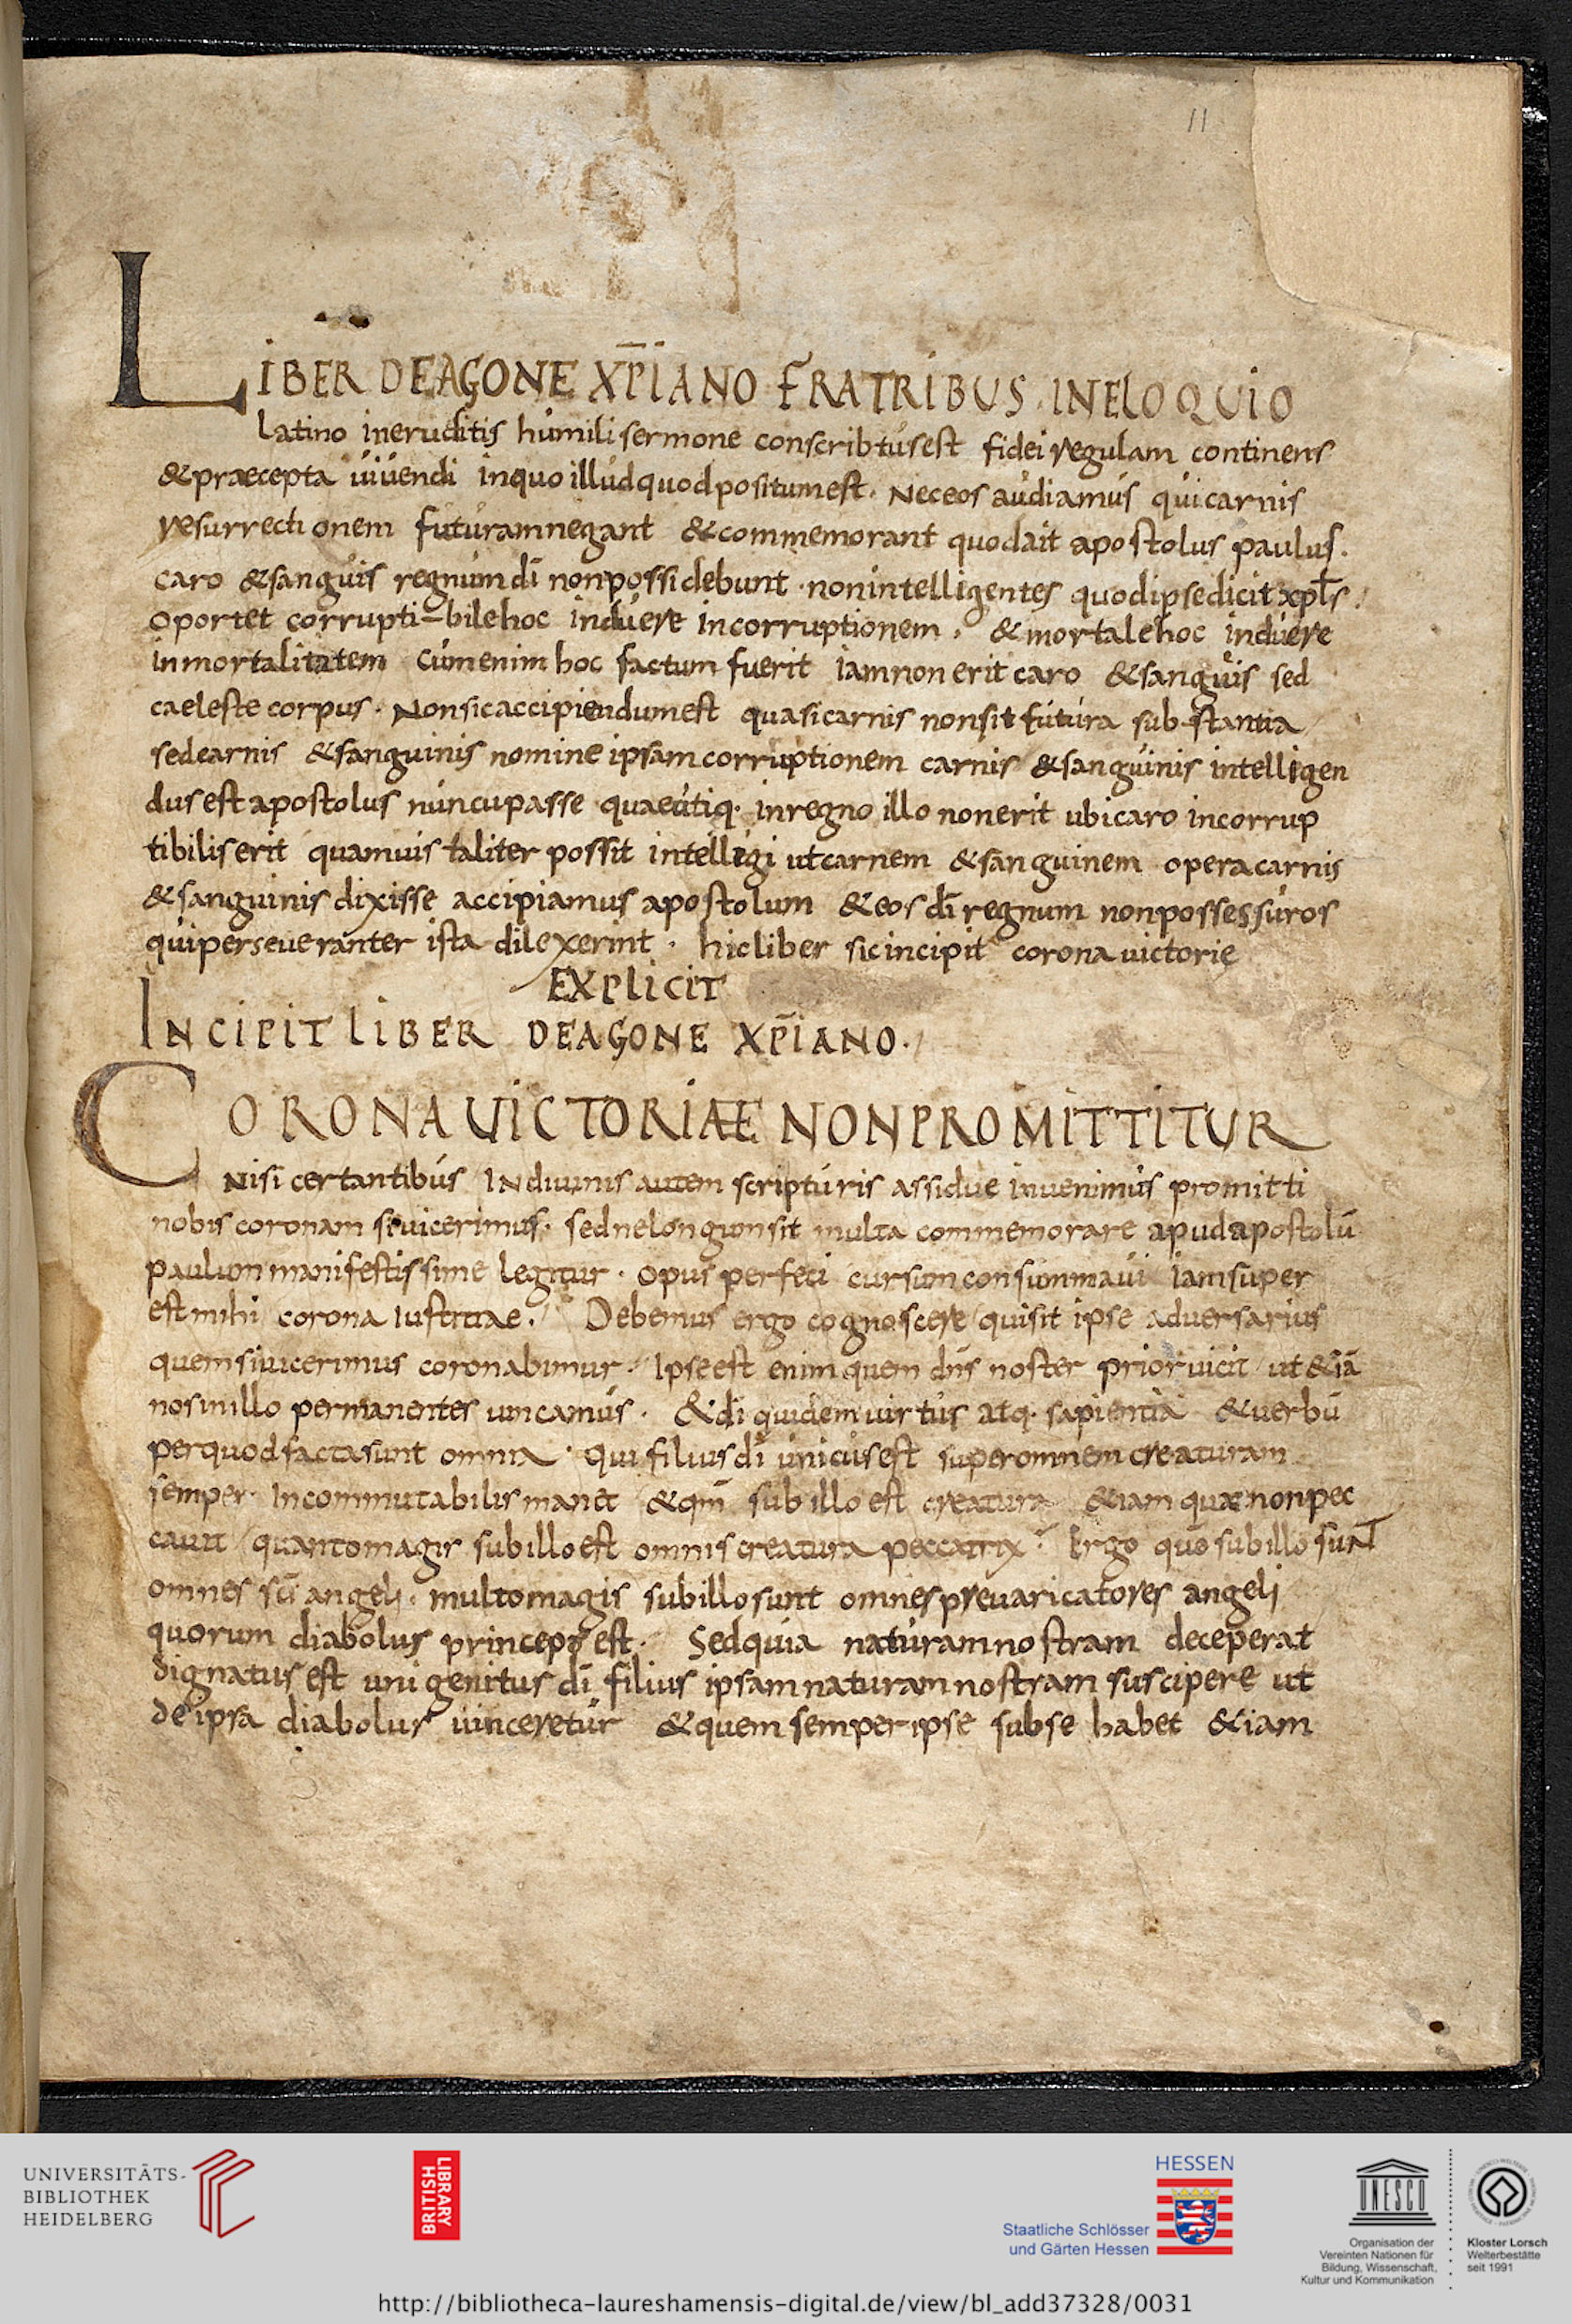 11
LIBER DEAGONE XP̄IANO FRATRIBUS · INELOQUIO
Latino ineruditis humili sermone conscribtusest fidei regulam continens
&praecepta uiuendi inquo illud quod positumest. Neceos audiamus qui carnis
resurrectionem futuramnegant &commemorant quodait apostolus paulus.
caro &sanguis regnum dī nonpossidebunt · nonintelligentes quodipsedicit apl̄s.
oportet corrupti-bilehoc induere incorruptionem. &mortalehoc induere
inmortalitatem cumenim hoc factum fuerit iamnon erit caro &sanguis sed
caeleste corpus. Nonsicaccipiendumest quasicarnis nonsit futura substantia
sedcarnis &sanguinis nomine ipsam corruptionem carnis &sanguinis intelligen
dusest apostolus nuncupasse quaeutiq. inregno illo nonerit ubicaro incorrup
tibiliserit quamuis taliter possit intellegi utcarnem &sanguinem operacarnis
&sanguinis dixisse accipiamus apostolum &eos dī regnum nonpossessuros
quiperseueranter ista dilexerint. hicliber sicincipit corona uictorie
EXPLICIT
INCIPIT LIBER DEAGONE XP̄IANO.
CORONA UICTORIAE NONPROMITTITUR
Nisi certantibus Indiuinis autem scripturis assidue inuenimus promitti
nobis coronam siuicerimus. sednelongumsit multa commemorare apudapostolū
paulum manifestissime legitur. opus perfeci cursum consummaui iamsuper
est mihi corona iustitiae. Debemus ergo cognoscere quisit ipse aduersarius
quemsiuicerimus coronabimur. Ipseest enim quem dn̄s noster prioruicit ut&iā
nosinillo permanentes uincamus. &dī quidem uirtus atq. sapientia &uerbū
perquodfactasunt omnia. Qui filius dī unicusest superomnem creaturam
semper. Incommutabilis manet &qm̄ sub illo est creatura &iam quae nonpec
cauit quantomagis subilloest omnis creatura peccatrix. Ergo quō subillo sunt
omnes sc̄i angeli. multomagis subillosunt omnes preuaricatores angeli
quorum diabolus princeps est. Sedquia naturamnostram deceperat
dignatus est unigenitus dī filius ipsamnaturamnostram suscipere ut
de ipsa diabolus uinceretur &quem semper ipse subse habet &iam
UNIVERSITÄTS-
BIBLIOTHEK
HEIDELBERG
BRITISH
LIBRARY
HESSEN
Staatliche Schlösser
und Gärten Hessen
UNESCO
Organisation der
Vereinten Nationen für
Bildung, Wissenschaft,
Kultur und Kommunikation
Kloster Lorsch
Welterbestätte
seit 1991
http://bibliotheca-laureshamensis-digital.de/view/bl_add37328/0031